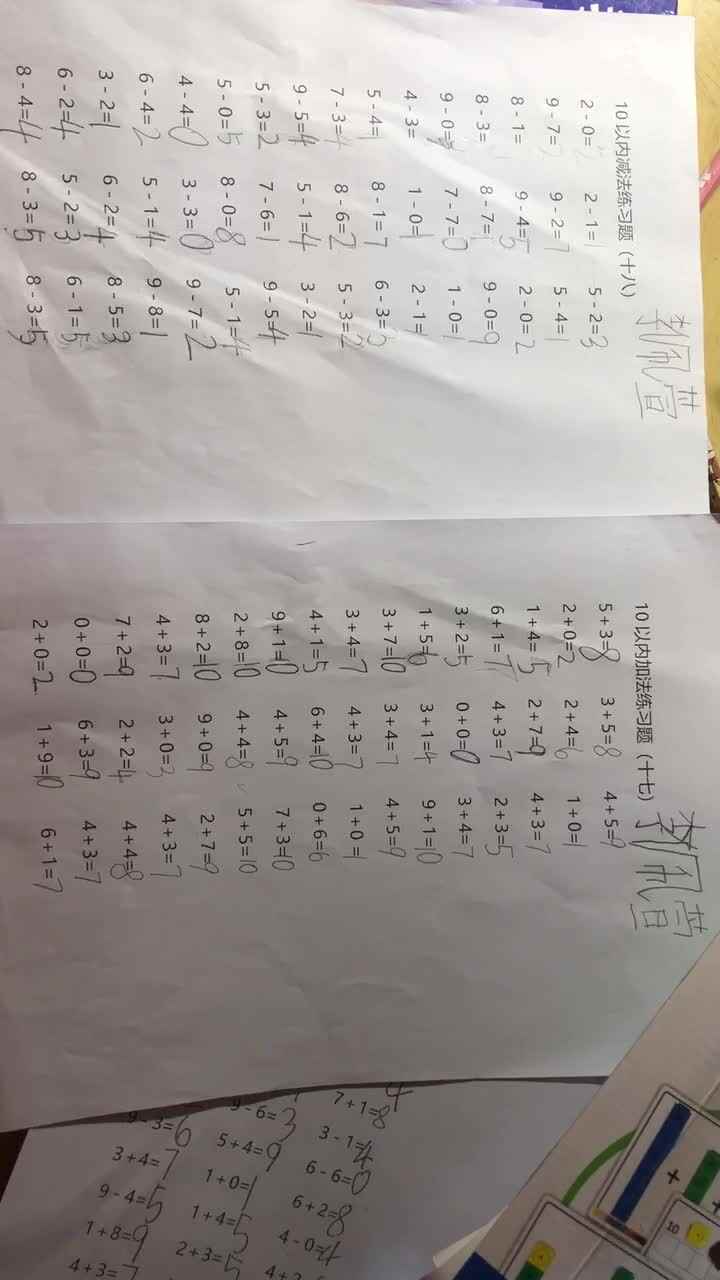 10 以内减法练习题（十八）
2 - 0=2 2 - 1=1 5 - 2=3
9 - 7=2 9 - 2=7 5 - 4=1
8 - 1= 9 - 4=5 2 - 0=2
8 - 3= 8 - 7=1 9 - 0=9
9 - 0=9 7 - 7=0 1 - 0=1
4 - 3= 1 - 0=1 2 - 1=1
5 - 4=1 8 - 1=7 6 - 3=3
7 - 3=4 8 - 6=2 5 - 3=2
9 - 5=4 5 - 1=4 3 - 2=1
5 - 3=2 7 - 6=1 9 - 5=4
5 - 0=5 8 - 0=8 5 - 1=4
4 - 4=0 3 - 3=0 9 - 7=2
6 - 4=2 5 - 1=4 9 - 8=1
3 - 2=1 6 - 2=4 8 - 5=3
6 - 2=4 5 - 2=3 6 - 1=5
8 - 4=4 8 - 3=5 8 - 3=5
10 以内加法练习题（十七）
5+3=8 3+5=8 4+5=9
2+0=2 2+4=6 1+0=1
1+4=5 2+7=9 4+3=7
6+1=7 4+3=7 2+3=5
3+2=5 0+0=0 3+4=7
1+5=6 3+1=4 9+1=10
3+7=10 3+4=7 4+5=9
3+4=7 4+3=7 1+0=1
4+1=5 6+4=10 0+6=6
9+1=10 4+5=9 7+3=10
2+8=10 4+4=8 5+5=10
8+2=10 9+0=9 2+7=9
4+3=7 3+0=3 4+3=7
7+2=9 2+2=4 4+4=8
0+0=0 6+3=9 4+3=7
2+0=2 1+9=10 6+1=7
9-3=6 9-6=3 7+1=8
3+4=7 5+4=9 3-1=4
9-4=5 1+0=1 6-6=0
1+8=9 1+4=5 6+2=8
4+3=7 2+3=5 4-0=4
4+2
10